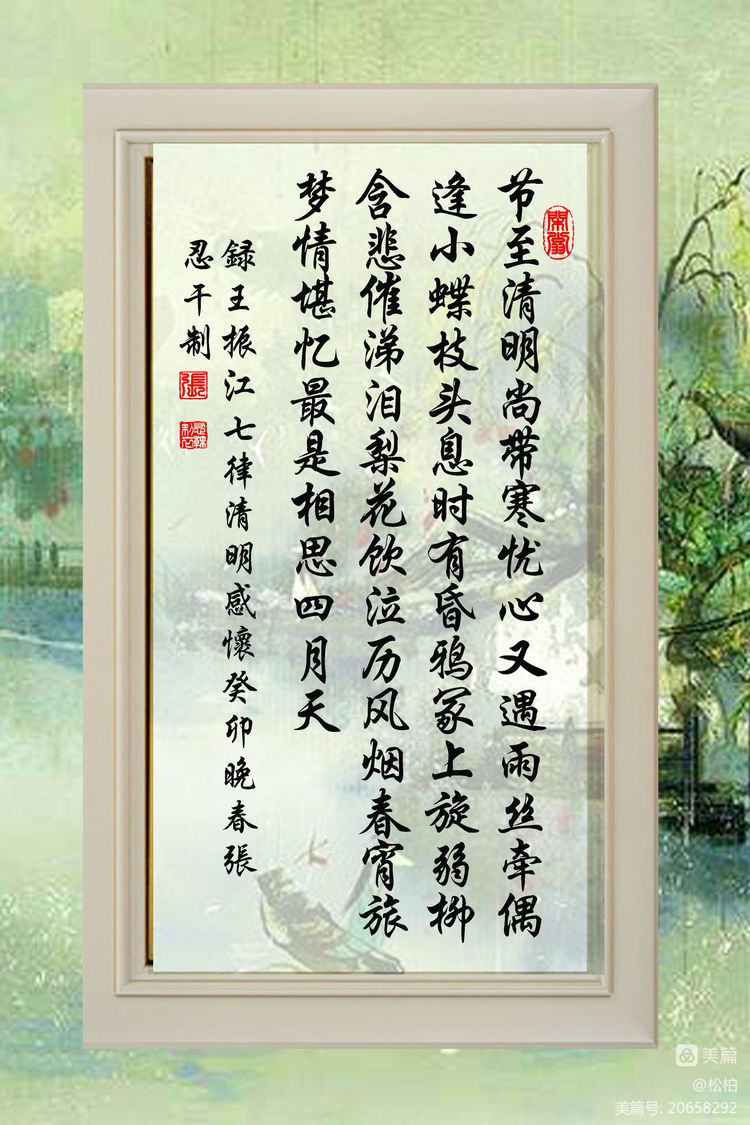 节至清明尚带寒忧心又遇雨丝牵偶
逢小蝶枝头息时有昏鸦冢上旋弱柳
含悲催涕泪梨花饮泣历风烟春宵旅
梦情堪忆最是相思四月天
録王振江七律清明感懷癸卯晚春張
忍干制
張
美篇
@松柏
美篇号: 20658292